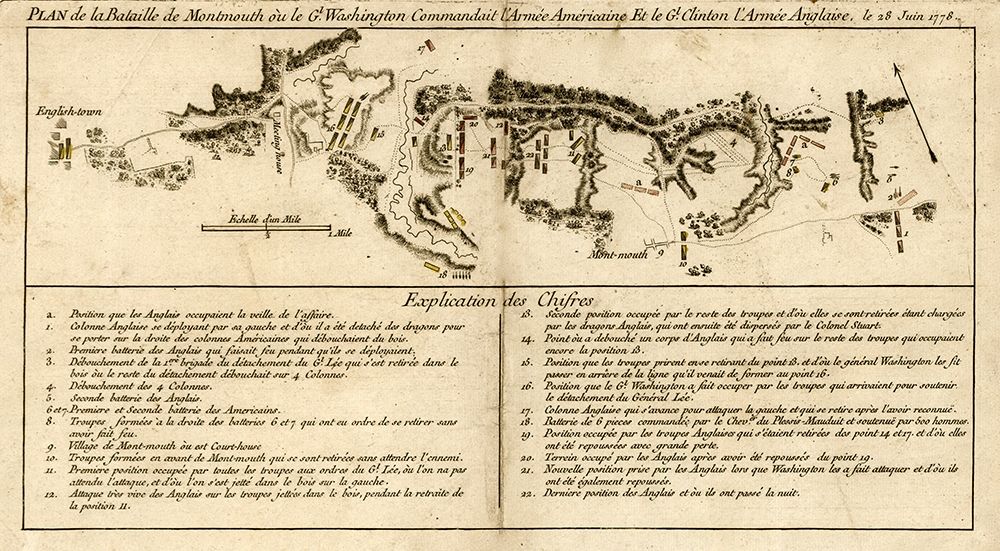 PLAN de la Bataille de Montmouth où le Gl. Washington Commandait l'Armée Américaine Et le Gl. Clinton l'Armée Anglaise, le 28 Juin 1778.
17
English-town
Meeting house
16
15
20
12
13
21
19
22
11
a
4
3
a
8
7
6
5
2
1
Echelle d'un Mile
1/2
1 Mile
18
Mont-mouth
9
10
Explication des Chifres
a. Position que les Anglais occupaient la veille de l'affaire.
1. Colonne Anglaise se déployant par sa gauche et d'où il a été detaché des dragons pour
se porter sur la droite des colonnes Américaines qui débouchaient du bois.
2. Premiere batterie des Anglais qui faisait feu pendant qu'ils se déployaient.
3. Débouchement de la 1ere brigade du détachement du Gl. Lée qui s'est retirée dans le
bois où le reste du détachement débouchait sur 4 Colonnes.
4. Débouchement des 4 Colonnes.
5. Seconde batterie des Anglais.
6 et 7. Premiere et Seconde batterie des Americains.
8. Troupes formées à la droite des batteries 6 et 7 qui ont eu ordre de se retirer sans
avoir fait feu.
9. Village de Mont-mouth où est Court-house
10. Troupes formées en avant de Mont-mouth qui se sont retirées sans attendre l'ennemi.
11. Premiere position occupée par toutes les troupes aux ordres du Gl. Lée, où l'on n'a pas
attendu l'attaque, et d'où l'on s'est jetté dans le bois sur la gauche.
12. Attaque très vive des Anglais sur les troupes jettées dans le bois, pendant la retraite de
la position 11.
13. Seconde position occupée par le reste des troupes et d'où elles se sont retirées étant chargées
par les dragons Anglais, qui ont ensuite été dispersés par le Colonel Stuart.
14. Point où a debouché un corps d'Anglais qui a fait feu sur le reste des troupes qui occupaient
encore la position 13.
15. Position que les troupes prirent en se retirant du point 13. et d'où le général Washington les fit
passer en arrière de la ligne qu'il venait de former au point 16.
16. Position que le Gl. Washington a fait occuper par les troupes qui arrivaient pour soutenir
le détachement du Général Lée.
17. Colonne Anglaise qui s'avance pour attaquer la gauche et qui se retire après l'avoir reconnuë.
18. Batterie de 6 pieces commandée par le Chevr. du Plessis-Mauduit et soutenuë par 600 hommes.
19. Position occupée par les troupes Anglaises qui s'étaient retirées des point 14 et 17. et d'où elles
ont été repoussées avec grande perte.
20. Terrein occupé par les Anglais après avoir été repoussés du point 19.
21. Nouvelle position prise par les Anglais lors que Washington les a fait attaquer et d'où ils
ont été également repoussés.
22. Derniere position des Anglais et où ils ont passé la nuit.